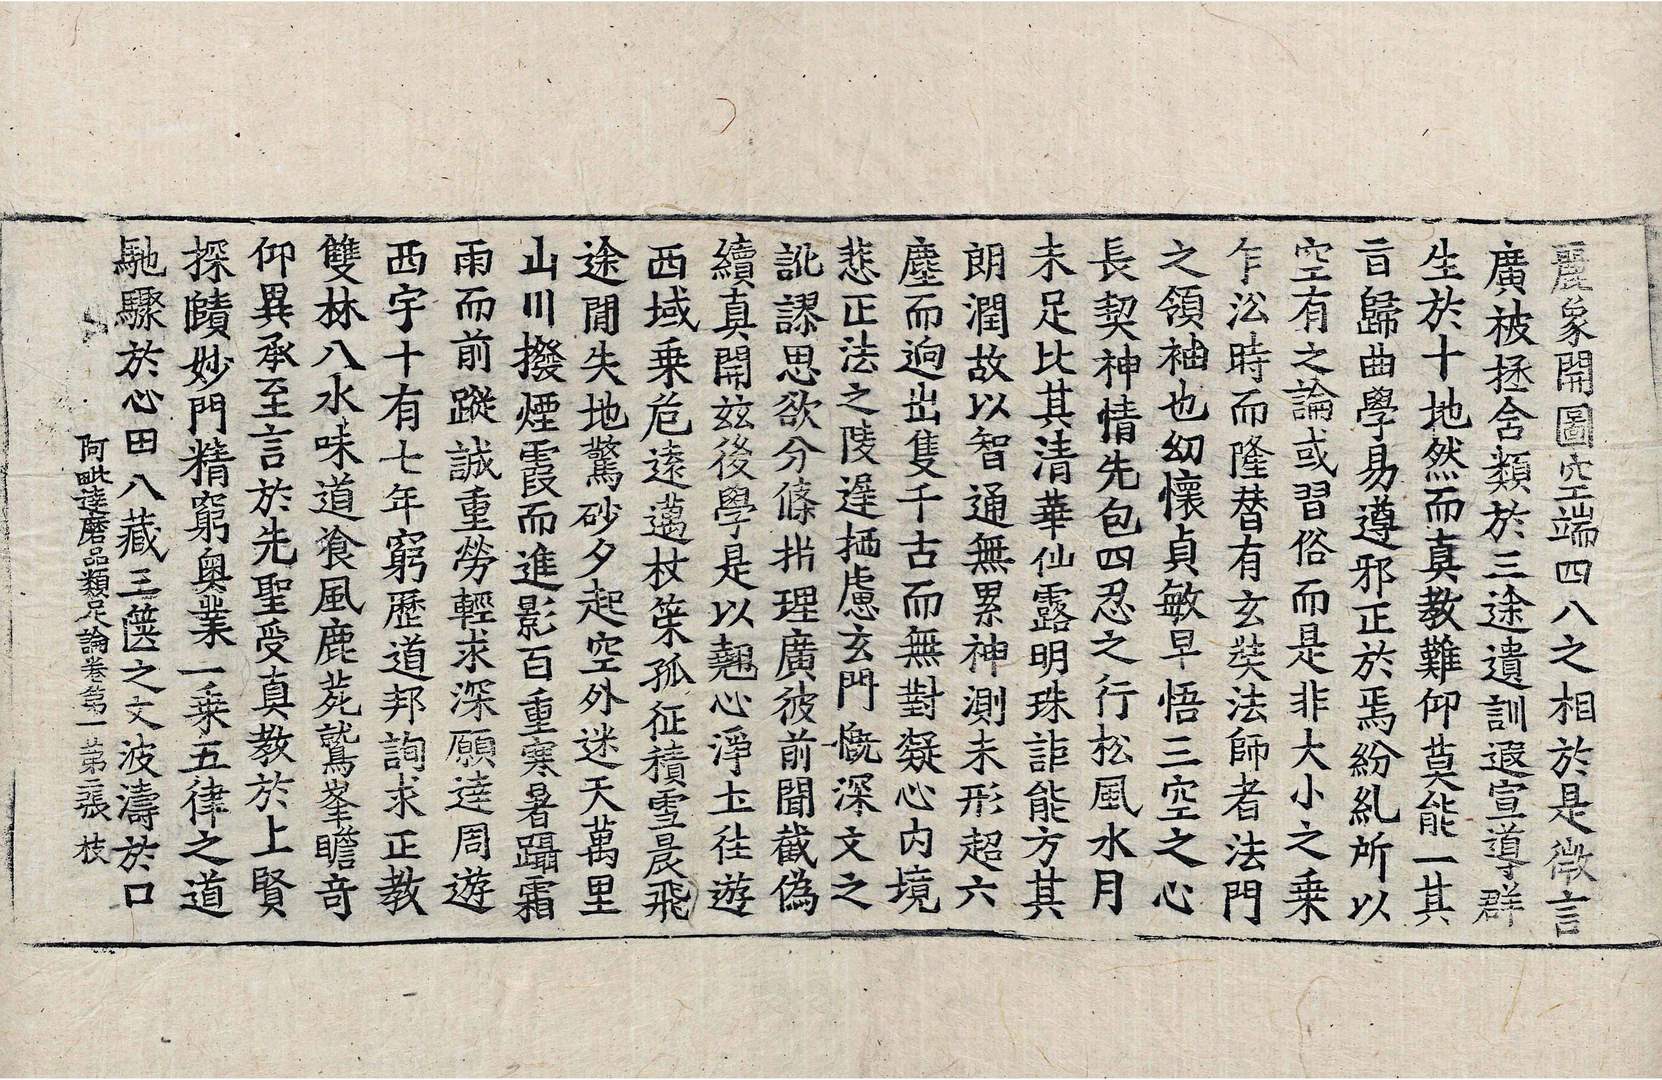 麗象開圖空端四八之相於是微言
廣被拯含類於三途遺訓遐宣導群
生於十地然而真教難仰莫能一其
旨歸曲學易遵邪正於焉紛糺所以
空有之論或習俗而是非大小之乘
乍沿時而隆替有玄奘法師者法門
之領袖也幼懷貞敏早悟三空之心
長契神情先包四忍之行松風水月
未足比其清華仙露明珠詎能方其
朗潤故以智通無累神測未形超六
塵而逈出隻千古而無對凝心內境
悲正法之陵遲栖慮玄門慨深文之
訛謬思欲分條析理廣彼前聞截偽
續真開茲後學是以翹心淨土往遊
西域乗危遠邁杖策孤征積雪晨飛
途閒失地驚砂夕起空外迷天萬里
山川撥煙霞而進影百重寒暑躡霜
雨而前蹤誠重勞輕求深願達周遊
西宇十有七年窮歷道邦詢求正教
雙林八水味道飡風鹿菀鷲峯瞻奇
仰異承至言於先聖受真教於上賢
探賾妙門精窮奧業一乘五律之道
馳驟於心田八藏三篋之文波濤於口
阿毗達磨品類足論卷第一第二張 枝